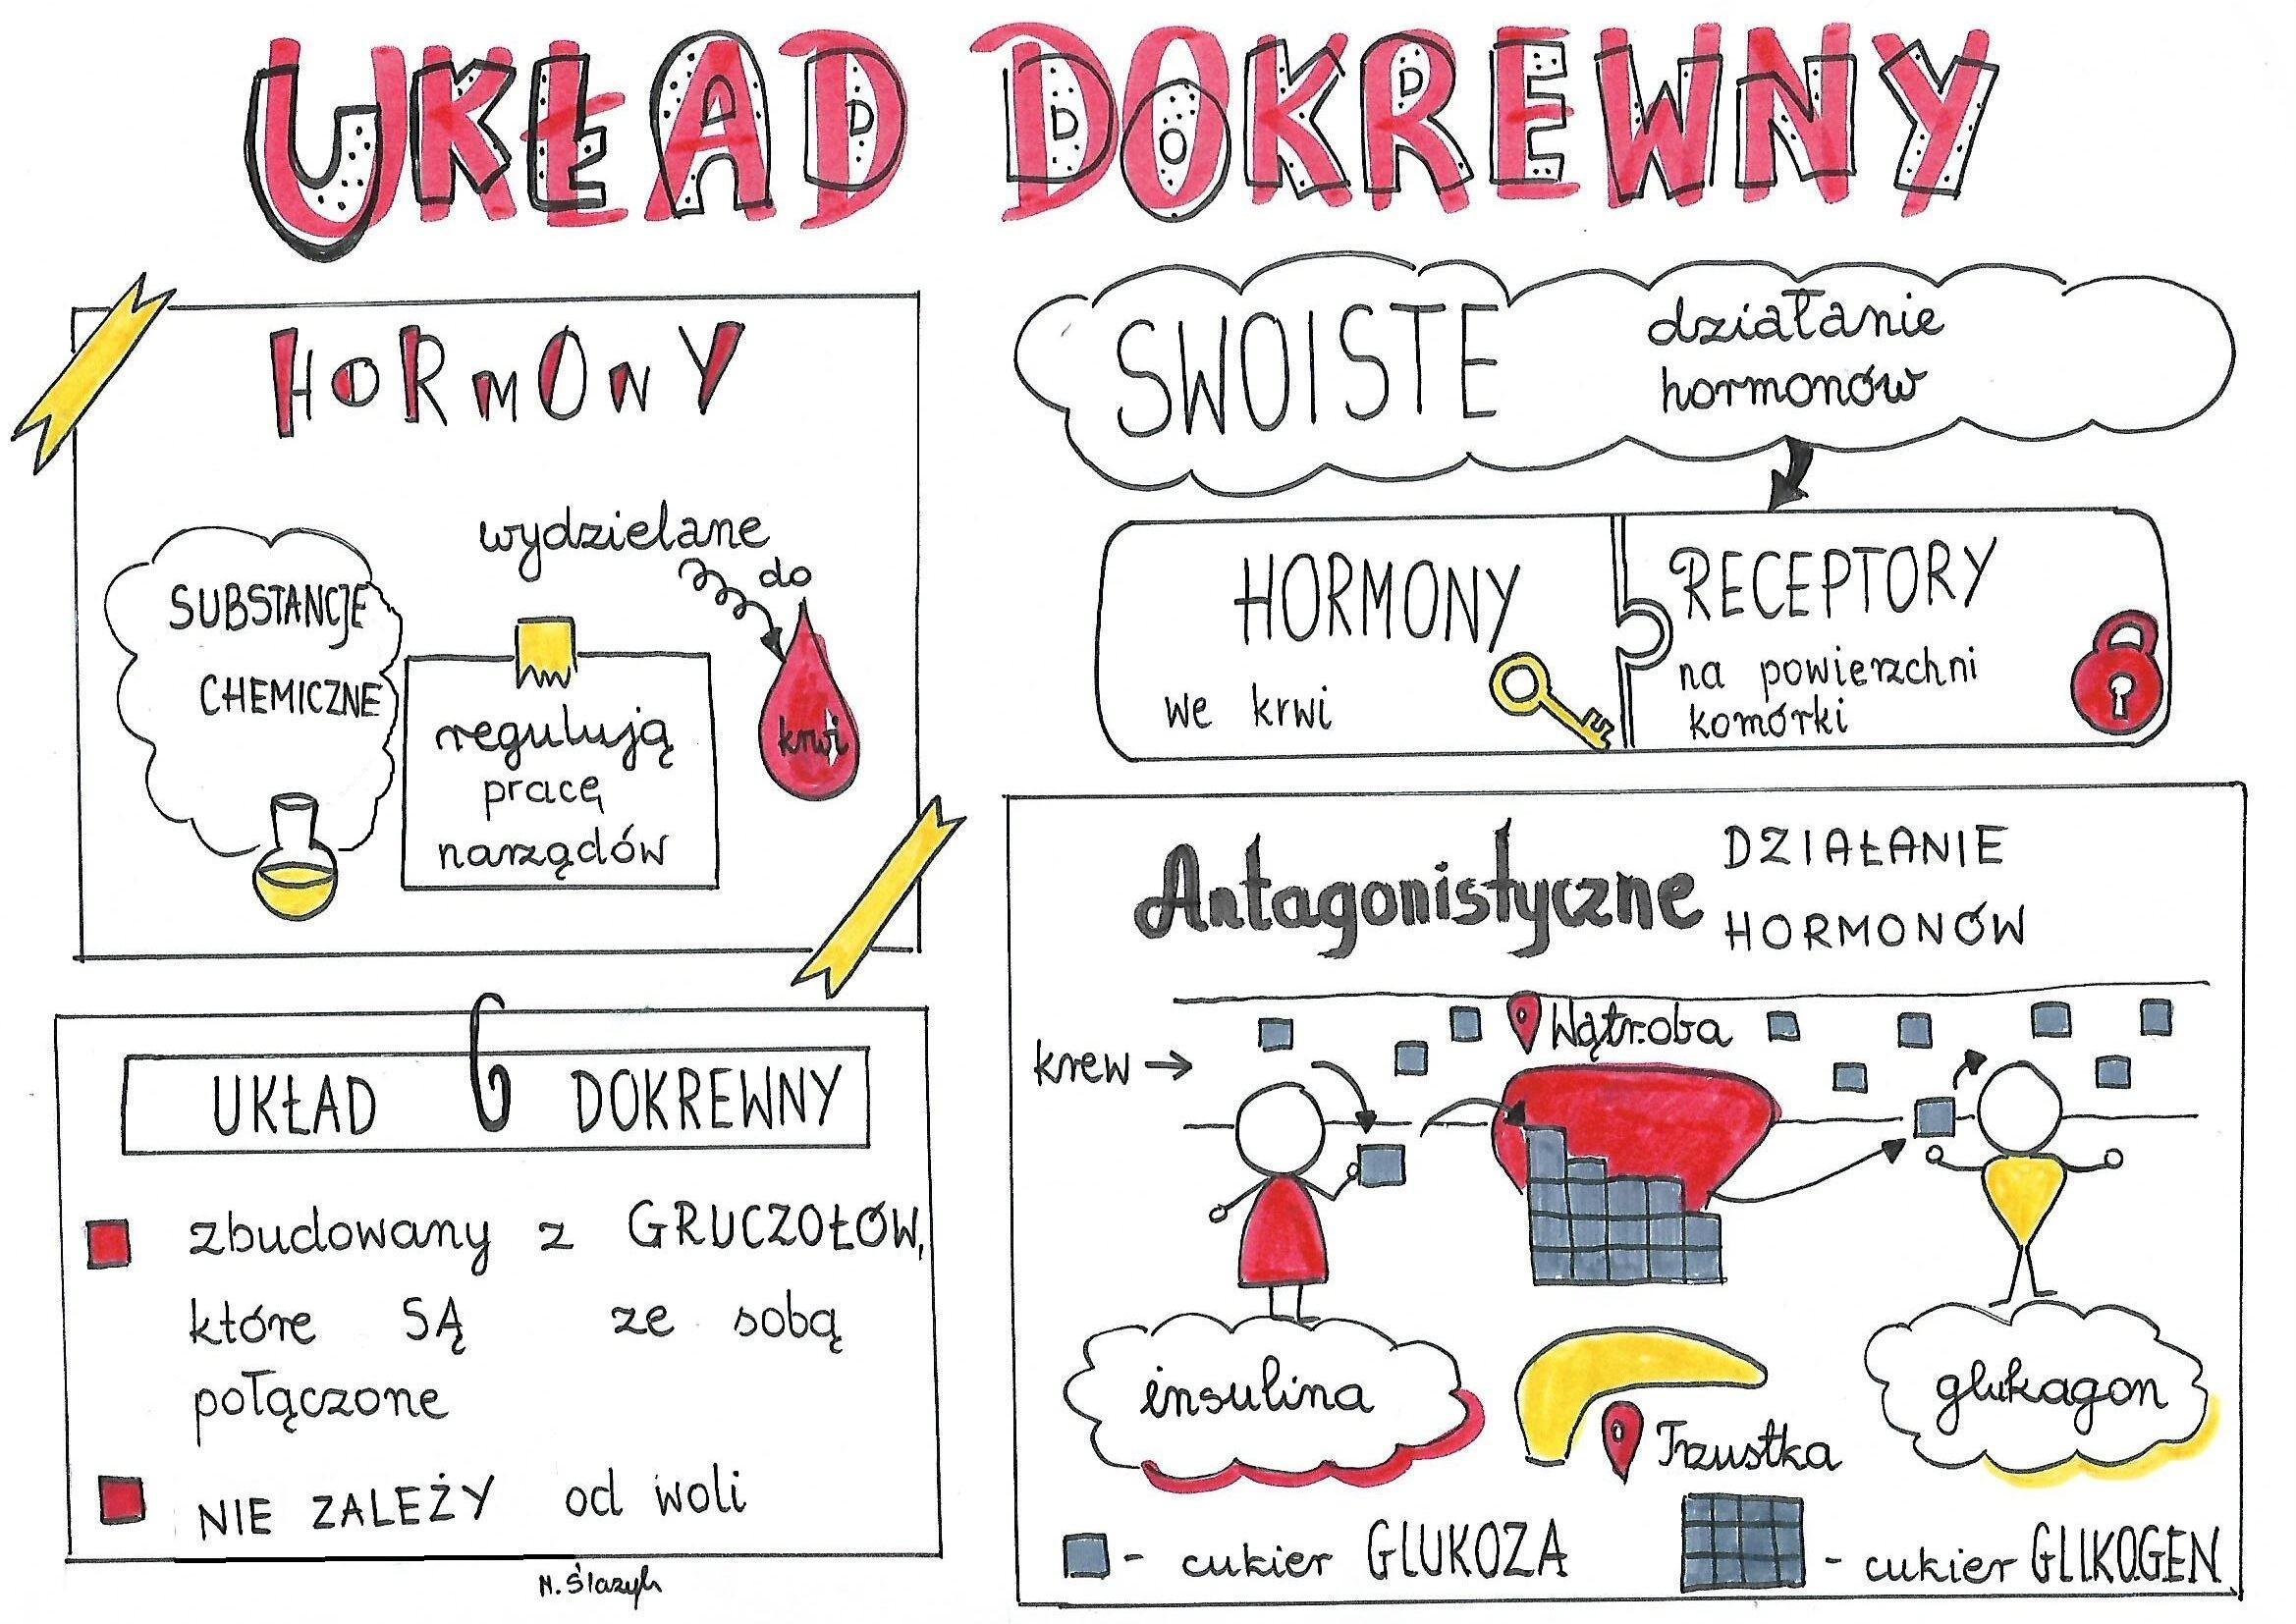 UKŁAD DOKREWNY
HORMONY
SUBSTANCJE
CHEMICZNE
wydzielane
do
krwi
regulują
pracę
narządów
UKŁAD DOKREWNY
zbudowany z GRUCZOŁÓW,
które SĄ ze sobą
połączone
NIE ZALEŻY od woli
SWOISTE działanie
hormonów
HORMONY
we krwi
RECEPTORY
na powierzchni
komórki
Antagonistyczne DZIAŁANIE
HORMONÓW
krew
Wątroba
insulina
Trzustka
glukagon
- cukier GLUKOZA
- cukier GLIKOGEN